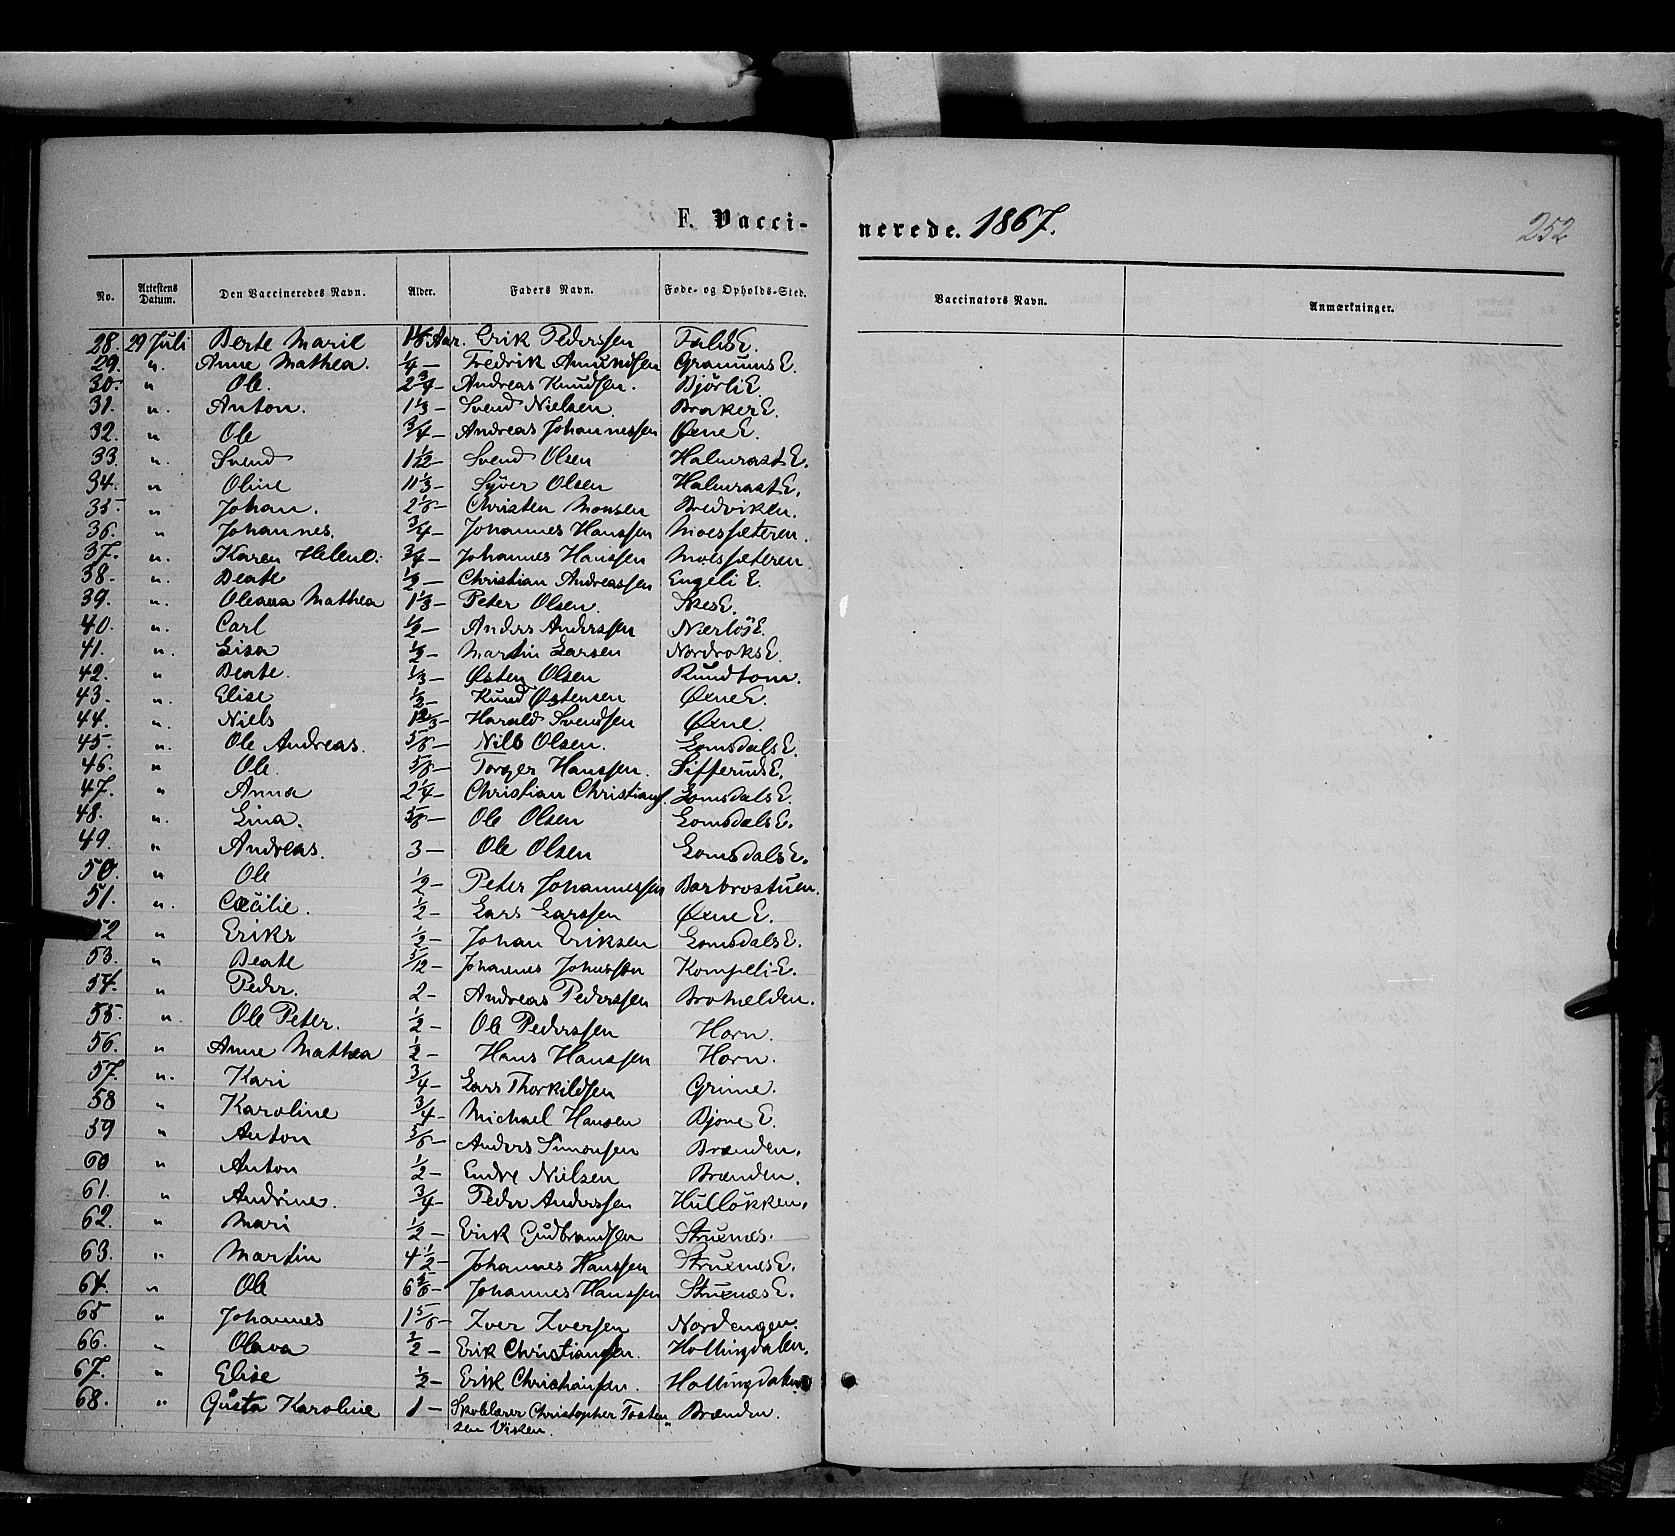 F. Vacci- nerede. 1867. 252
No. Attestens Datum. Den Vaccineredes Navn. Alder. Faders Navn. Føde- og Opholds-Sted. Vaccinators Navn. Anmærkninger.
28. 29 Juli Berte Marie Aar. Erik Pederssen FaldsE.
29. " Anne Mathea. 1/4 — Fredrik Amundsen GranumsE.
30. " Ole. 2 3/4 — Andreas Knudsen. BjørliE.
31. " Anton. 1 1/3 — Svend Nielsen. BrakerE.
32. " Ole 3/4 — Andreas Johannessen ØxneE.
33. " Svend 1 1/12 — Svend Olsen HalmrastE.
34. " Oline 11 1/3 — Syver Olsen HalmrastE.
35. " Johan. 2 1/6 — Christen Monsen Bredviken.
36. " Johannes. 3/4 — Johannes Hanssen Moesæteren.
37. " Karen Helene. 3/4 — Johannes Hanssen Moesæteren
38. " Beate 1/2 — Christian Andreassen Engeli E.
39. " Oleana Mathea 1 1/3 — Peter Olsen. SkesE.
40. " Carl 1/2 — Anders Anderssen
41. " Lisa 1/2 — Martin Larsen NordroksE.
42. " Beate. 1/3 — Østen Olsen Rundtom.
43. " Elise 1/2 — Knud Østensen ØxneE.
44. " Niels Harald Svendsen Øxne.
45. " Ole Andreas. 5/6 — Nils Olsen. LomsdalsE.
46. " Ole. 5/6 — Torger Hanssen. SifferudsE.
47. " Anna 2 1/4 — Christian Christians. LomsdalsE.
48. " Lina. 5/6 — Ole Olsen LomsdalsE.
49. " Andreas. 3 — Ole Olsen LomsdalsE.
50. " Ole 1/2 — Peter Johannessen Barbrostuen.
51. " Cæcilie. 1/2 — Lars Larssen ØxneE.
52 " Erik 1/2 — Johan Eriksen LomsdalsE.
53. " Beate 5/12 — Johannes Johnssen Kompeli-E.
54. " Peder. 2 — Andreas Pederssen Brovælden.
55. " Ole Peter. 1/2 — Ole Pederssen Horn.
56. " Anne Mathea 1/2 — Hans Hanssen Horn.
57. " Kari 3/4 — Lars Thorkildsen Grime.
58 " Karoline 3/4 — Michael Hansen BjoneE.
59 " Anton 5/6 — Anders Simonsen Brænden.
60 " Anton 1/2 — Endre Nielsen Brænden.
61. " Andrine. 3/4 — Peder Anderssen Hulløkken.
62. " Mari 1/2 — Erik Gudbrandsen Struxnæs.
63. " Martin 4 1/2 — Johannes Hanssen StruxnæsE.
64. " Ole 6 5/6 — Johannes Hanssen StruxnæsE.
65 " Johannes 1 5/6 — Iver Iversen Nordengen.
66. " Olava Erik Christiansen. Hollingdalen.
67. " Elise 1/2 — Erik Christiansen. Hollingdalen
68. " Gusta Karoline 1 — Skolelærer Christopher Tosten" Brænden.
sen Viken.